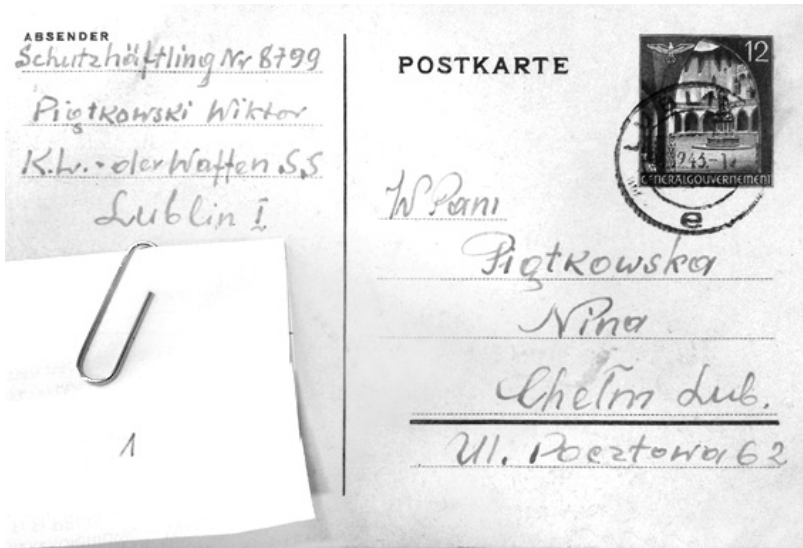 ABSENDER
Schutzhäftling Nr 8799
Piątkowski Wiktor
K.L.-der Waffen S,S
Lublin I
1
POSTKARTE
12
GENERALGOUVERNEMENT
e
W Pani
Piątkowska
Nina
Chełm Lub.
Ul. Pocztowa 62